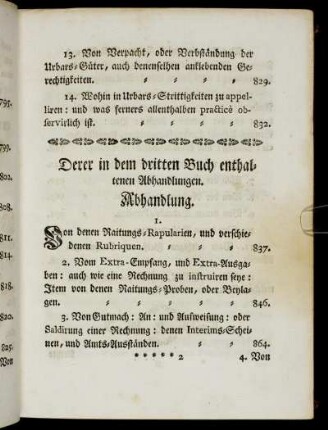 13. Von Verpacht, oder Verbständung der
Urbars-Güter, auch denenselben anklebenden Ge-
rechtigkeiten. 829.
14. Wohin in Urbars-Strittigkeiten zu appel-
liren: und was ferners allenthalben practicè ob-
servirlich ist. 832.
Derer in dem dritten Buch enthal-
tenen Abhandlungen.
Abhandlung.
1.
Von denen Raitungs-Rapularien, und verschie-
denen Rubriquen. 837.
2. Vom Extra-Empfang, und Extra-Ausga-
ben: auch wie eine Rechnung zu instruiren seye:
Item von denen Raitungs-Proben, oder Beyla-
gen. 846.
3. Von Gutmach: An: und Ausweisung: oder
Saldirung einer Rechnung: denen Interims-Schei-
nen, und Amts-Ausständen. 864.
* * * * * 2 4. Von